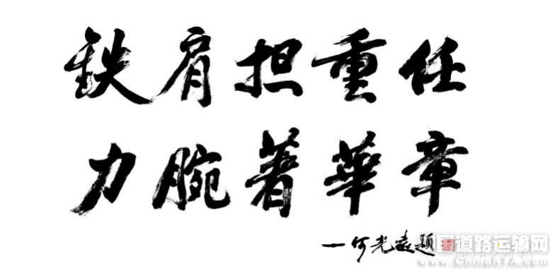 鉄肩担重任
力腕著華章
一何光远题
中国道路运输网
www.chinarta.com